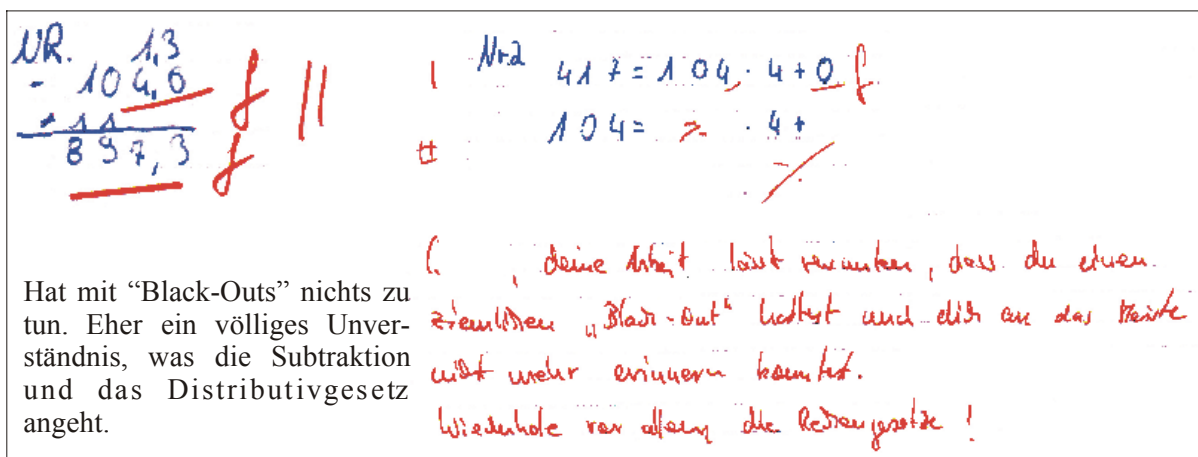 NR. 1,3
- 104,0 f ||
- 11
897,3 f
| Nr.2 417 = 104 · 4 + 0 f
104 = · 4 +
Hat mit “Black-Outs” nichts zu
tun. Eher ein völliges Unver-
ständnis, was die Subtraktion
und das Distributivgesetz
angeht.
deine Arbeit lässt vermuten, dass du einen
ziemlichen „Black-Out“ hattest und dich an das Meiste
nicht mehr erinnern konntest.
Wiederhole vor allem die Rechengesetze !